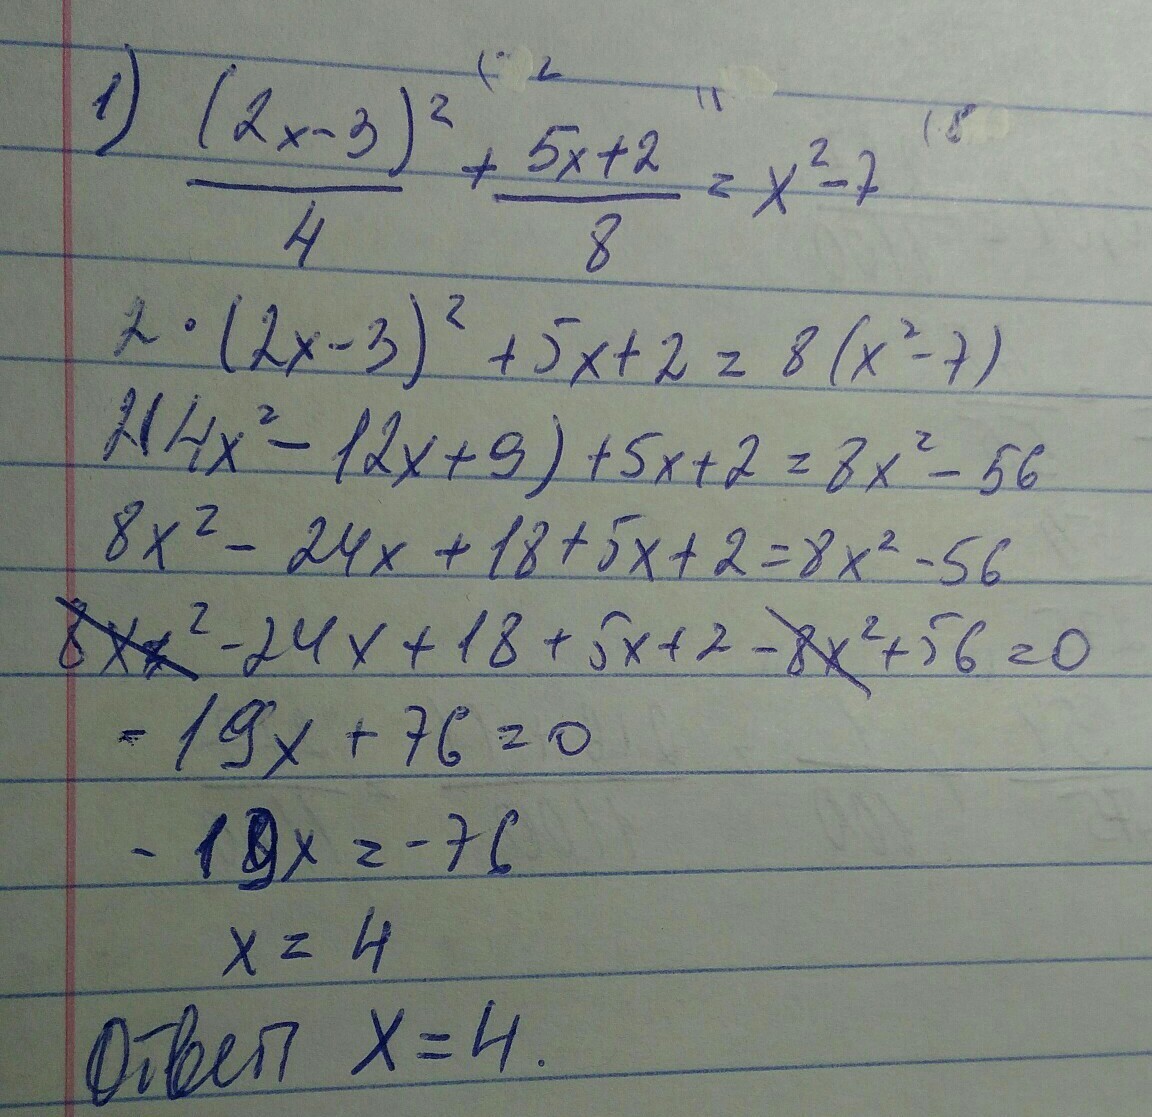 1) (2x-3)²/4 + (5x+2)/8 = x²-7
2·(2x-3)²+5x+2=8(x²-7)
2(4x²-12x+9)+5x+2=8x²-56
8x²-24x+18+5x+2=8x²-56
8x²-24x+18+5x+2-8x²+56=0
-19x+76=0
-19x=-76
x=4
Ответ x=4.